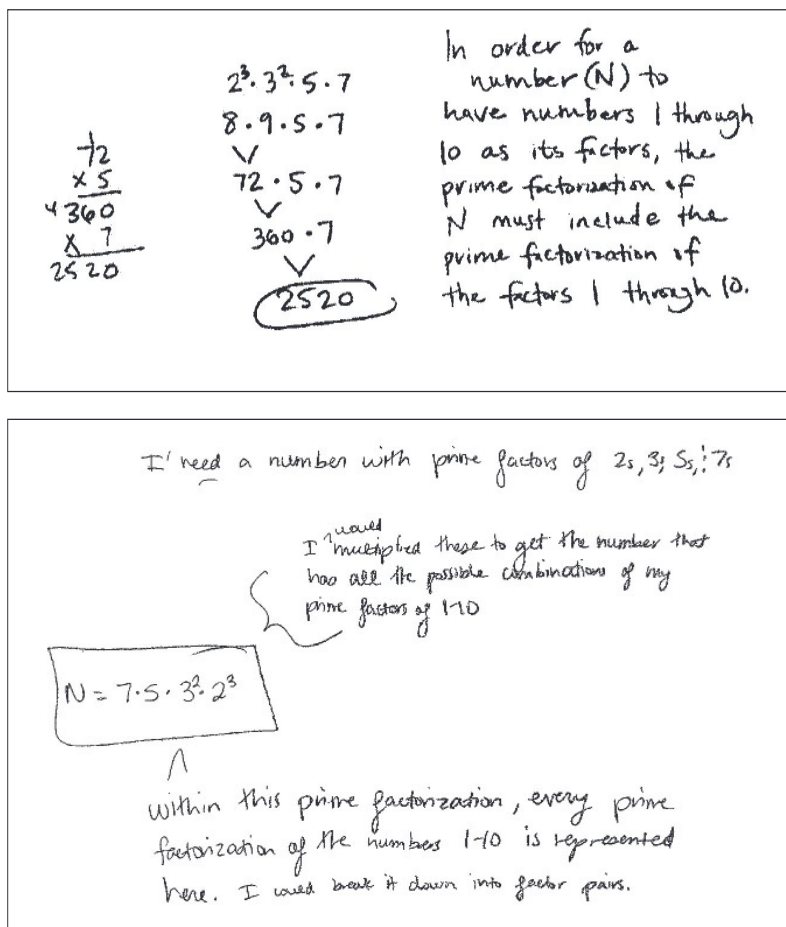 2³·3²·5·7
8·9·5·7
72·5·7
360·7
2520
72
x 5
4 360
x 7
2520
In order for a
number (N) to
have numbers 1 through
10 as its factors, the
prime factorization of
N must include the
prime factorization of
the factors 1 through 10.
I need a number with prime factors of 2s, 3s, 5s, 7s
I would multiplied these to get the number that
has all the possible combinations of my
prime factors of 1-10
N = 7·5·3²·2³
within this prime factorization, every prime
factorization of the numbers 1-10 is represented
here. I could break it down into factor pairs.